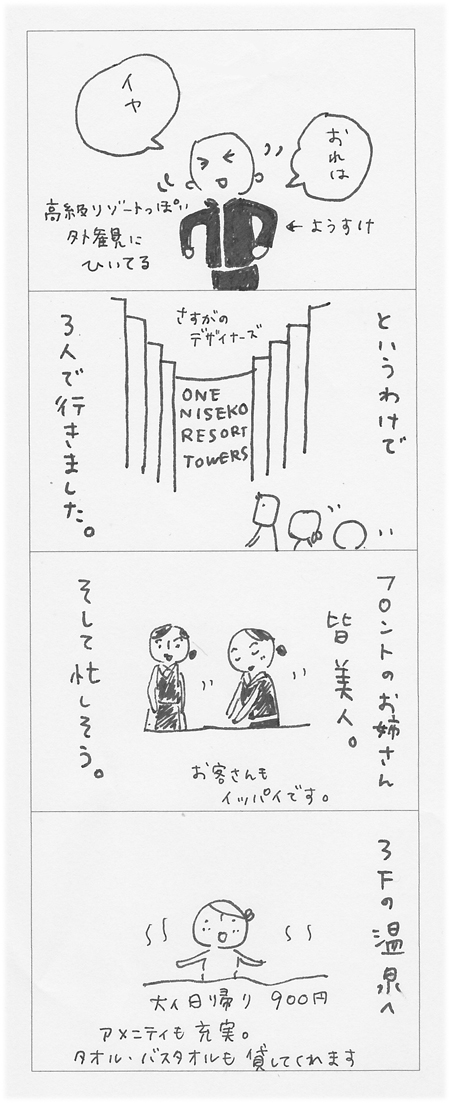 おれは
イヤ
高級リゾートっぽい
外観に
ひいてる
←ようすけ
というわけで
さすがの
デザイナーズ
ONE
NISEKO
RESORT
TOWERS
3人で行きました。
フロントのお姉さん
皆美人。
そして忙しそう。
お客さんも
イッパイです。
3Fの温泉へ
大人日帰り 900円
アメニティも充実。
タオル・バスタオルも貸してくれます